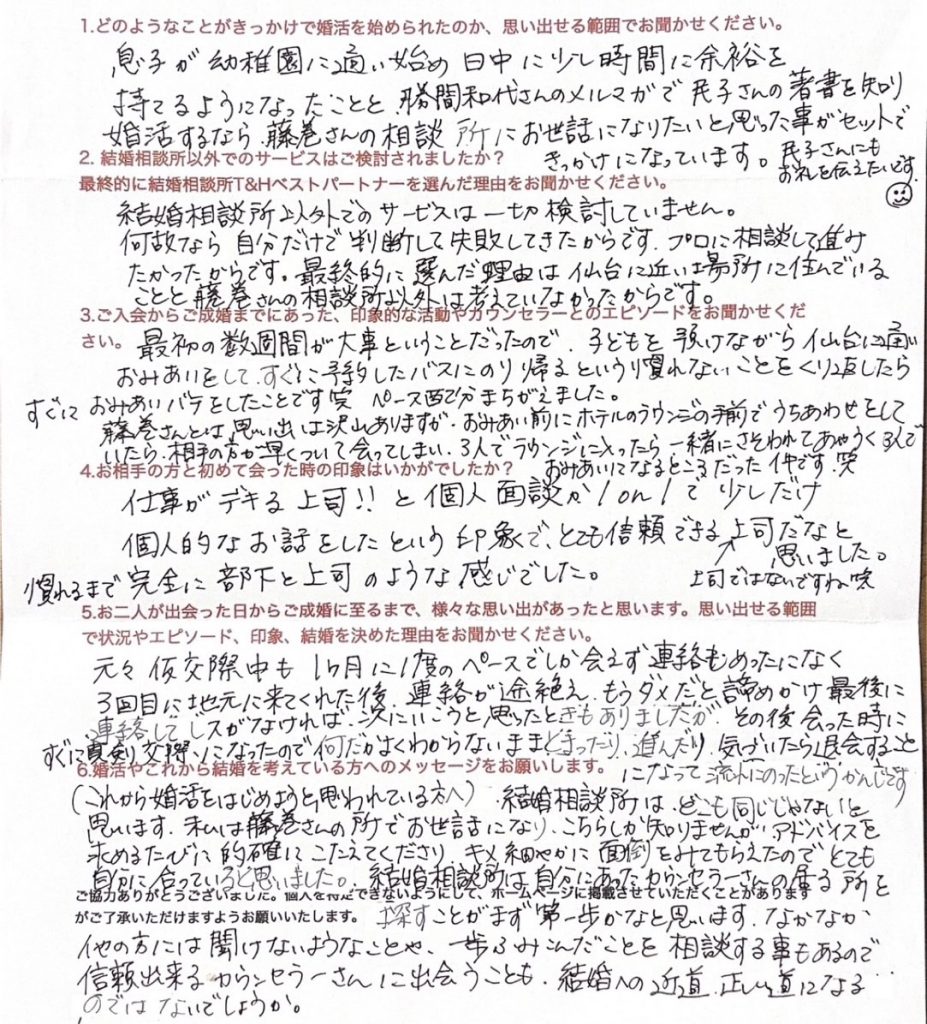 1.どのようなことがきっかけで婚活を始められたのか、思い出せる範囲でお聞かせください。
息子が幼稚園に通い始め日中に少し時間に余裕を
持てるようになったことと、勝間和代さんのメルマガで民子さんの著書を知り
婚活するなら藤巻さんの相談所にお世話になりたいと思った事がセットで
きっかけになっています。民子さんにも
お礼を伝えたいです。
2. 結婚相談所以外でのサービスはご検討されましたか?
最終的に結婚相談所T&Hベストパートナーを選んだ理由をお聞かせください。
結婚相談所以外でのサービスは一切検討していません。
何故なら自分だけで判断して失敗してきたからです。プロに相談して進み
たかったからです。最終的に選んだ理由は仙台に近い場所に住んでいる
ことと藤巻さんの相談所以外は考えていなかったからです。
3.ご入会からご成婚までにあった、印象的な活動やカウンセラーとのエピソードをお聞かせくだ
さい。
最初の数週間が大事ということだったので、子どもを預けながら仙台に通い
おみあいをして、すぐに予約したバスにのり帰るという慣れないことをくり返したら
すぐにおみあいバテをしたことです笑 ペース配分まちがえました。
藤巻さんとは、思い出は沢山ありますが、おみあい前にホテルのラウンジの手前でうちあわせをして
いたら、相手の方が早くついて会ってしまい、3人でラウンジに入ったら一緒にさそわれてあやうく3人で
おみあいになるところだった件です。笑
4.お相手の方と初めて会った時の印象はいかがでしたか?
仕事がデキる上司!!と個人面談か1on1で少しだけ
個人的なお話をしたという印象で、とても信頼できる上司だなと
思いました。
↗上司ではないですね笑
慣れるまで完全に部下と上司のような感じでした。
5.お二人が出会った日からご成婚に至るまで、様々な思い出があったと思います。思い出せる範囲
で状況やエピソード、印象、結婚を決めた理由をお聞かせください。
元々仮交際中も1ヶ月に1度のペースでしか会えず連絡もめったになく
3回目に地元に来てくれた後、連絡が途絶え、もうダメだと諦めかけ最後に
連絡してレスがなければ、次にいこうと思ったときもありましたが、その後会った時に
すぐに真剣交際になったので何だかよくわからないままとまったり、進んだり、気づいたら退会すること
になって流れにのったというかんじです
6.婚活やこれから結婚を考えている方へのメッセージをお願いします。
(これから婚活をはじめようと思われている方へ)結婚相談所は、どこも同じじゃないと
思います。私は藤巻さんの所でお世話になり、こちらしか知りませんが、アドバイスを
求めるたびに的確にこたえてくださり、キメ細やかに面倒をみてもらえたのでとても
自分に合っていると思いました。結婚相談所は自分にあったカウンセラーさんの居る所を
ご協力ありがとうございました。個人を特定できないようにして、ホームページに掲載させていただくことがあります
がご了承いただけますようお願いいたします。
探すことがまず第一歩かなと思います。なかなか
他の方には聞けないようなことや、一歩ふみこんだことを相談する事もあるので
信頼出来るカウンセラーさんに出会うことも、結婚への近道、正しい道になる
のではないでしょうか。